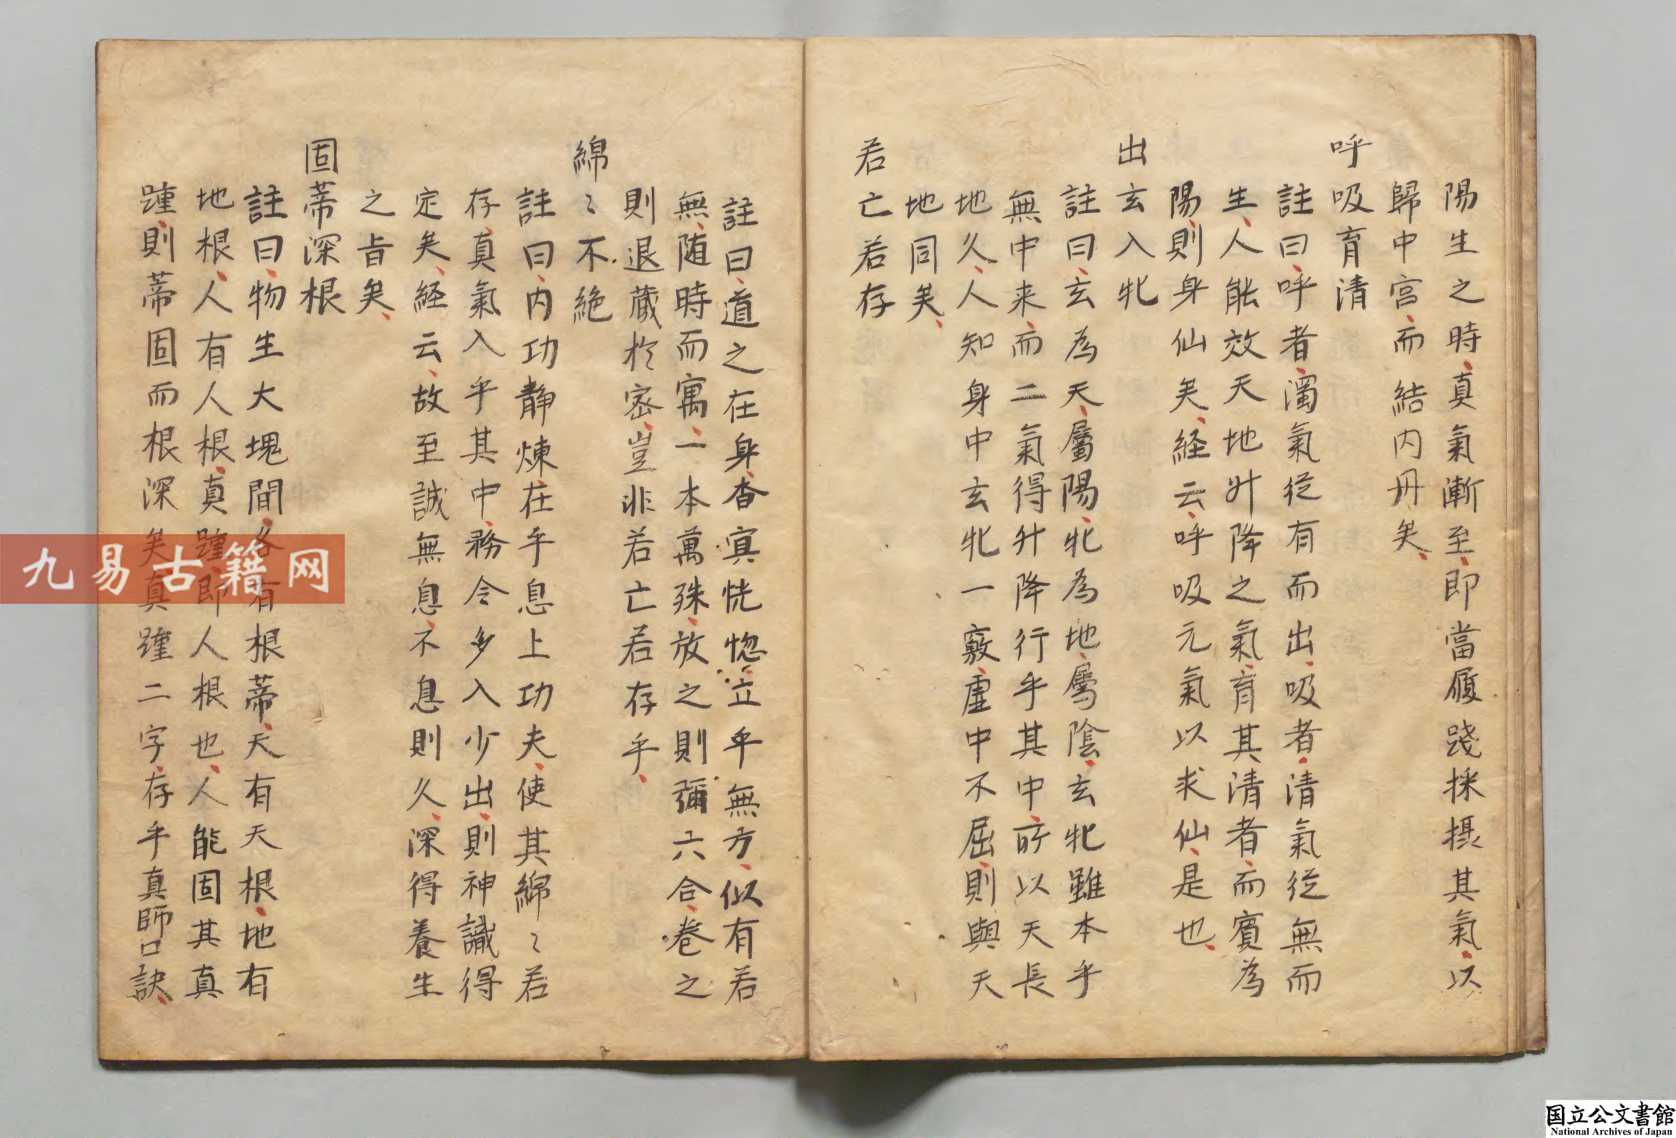 陽生之時、真氣漸至、即當履踐採摂其氣、以
歸中宮、而結内丹矣、
呼吸育清
註曰、呼者、濁氣従有而出、吸者、清氣従無而
生、人能效天地升降之氣、育其清者、而賓為
陽、則身仙矣、経云、呼吸元氣以求仙、是也、
出玄入牝
註曰、玄為天、屬陽、牝為地、屬陰、玄牝雖本乎
無中来、而二氣得升降行乎其中、所以天長
地久、人知身中玄牝一竅、虚中不屈、則與天
地同矣、
若亡若存
註曰、道之在身、杳冥恍惚、立乎無方、似有若
無、随時而寓、一本萬殊、放之則彌六合、巻之
則退蔵於密、豈非若亡若存乎、
綿〻不絶
註曰、内功静煉、在乎息上功夫、使其綿〻若
存、真氣入乎其中、務令多入少出、則神識得
定矣、経云、故至誠無息、不息則久、深得養生
之旨矣、
固蒂深根
註曰、物生大塊間、各有根蒂、天有天根、地有
地根、人有人根、真踵、即人根也、人能固其真
踵、則蒂固而根深矣、真踵二字、存乎真師口訣、
九易古籍网
国立公文書館
National Archives of Japan